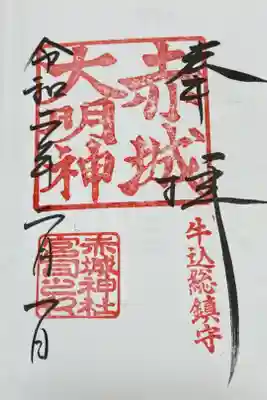 奉拝
牛込総鎮守
赤城
大明神
赤城神社
宮司之印
令和年一月一日